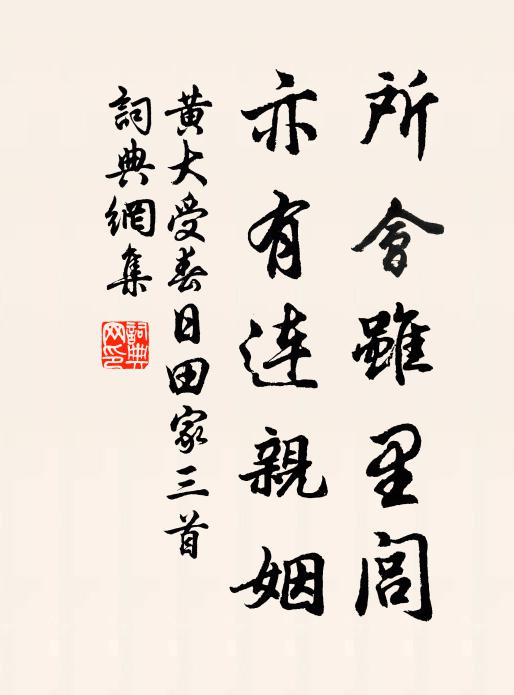 所會雖里閭
亦有連親姻
黄大受春日田家三首
詞典網集
詞典網印